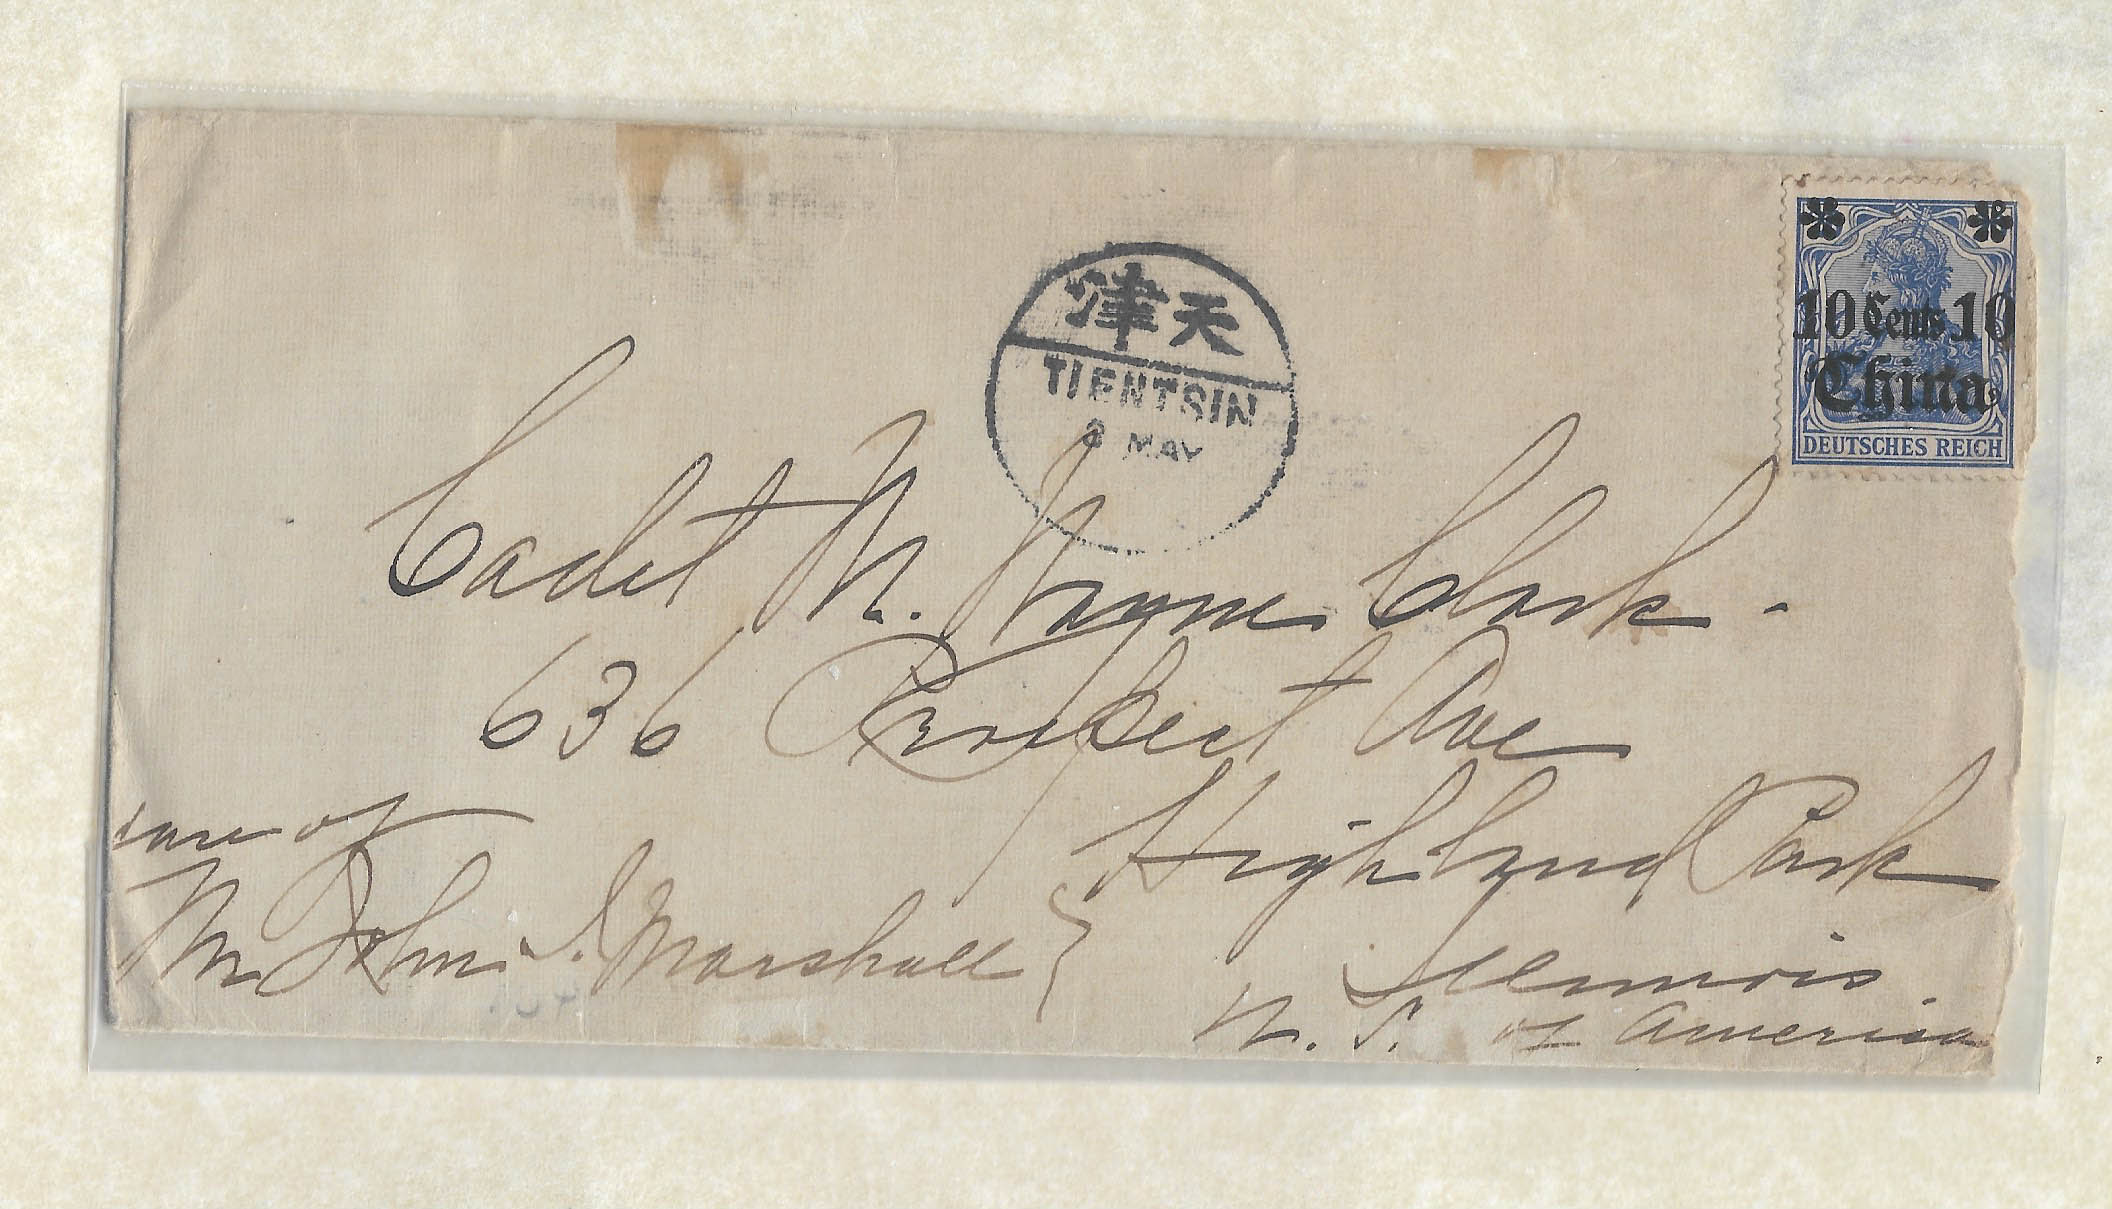 津天
TIENTSIN
8 MAY
10 Cents 10
China
DEUTSCHES REICH
Cadet M. Wayne Clark -
636 Prospect Ave
Highland Park
Illinois.
U. S. of America
care of
Mr John S. Marshall }